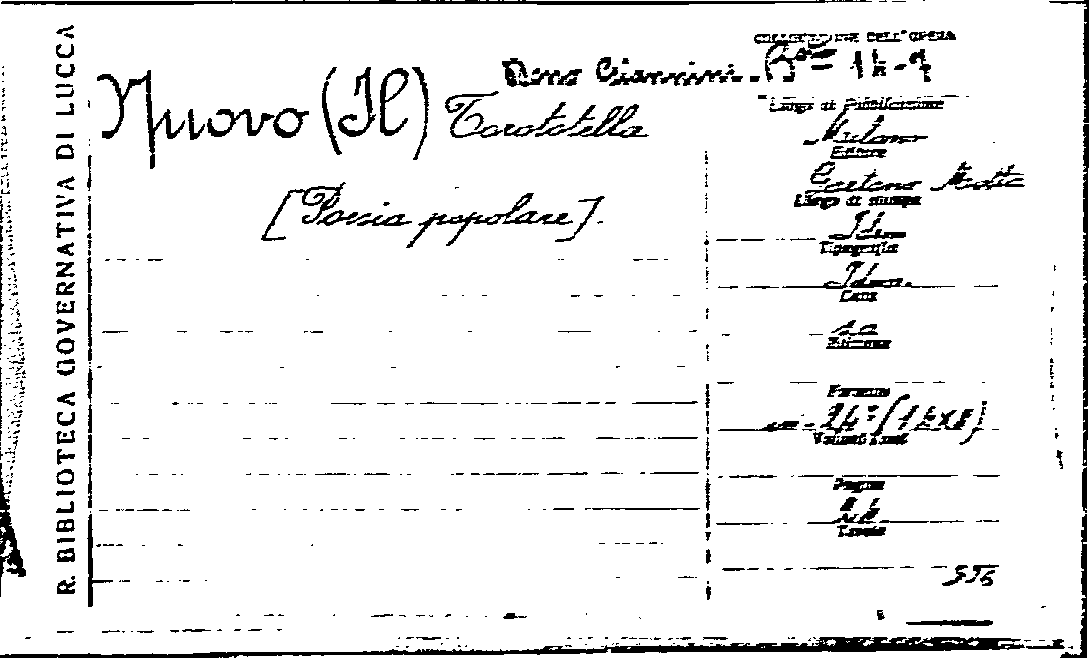 R. BIBLIOTECA GOVERNATIVA DI LUCCA
COLLOCAZIONE DELL'OPERA
Dono Giannini. B.ª 14-7
Nuovo (Il) Tarototella
[Poesia popolare].
Luogo di Pubblicazione
Milano
Editore
Gaetano Motta
Luogo di stampa
Idem
Tipografia
Idem.
Data
Edizione
Formato
in-24° (14x8)
Pagine
24
Tavole